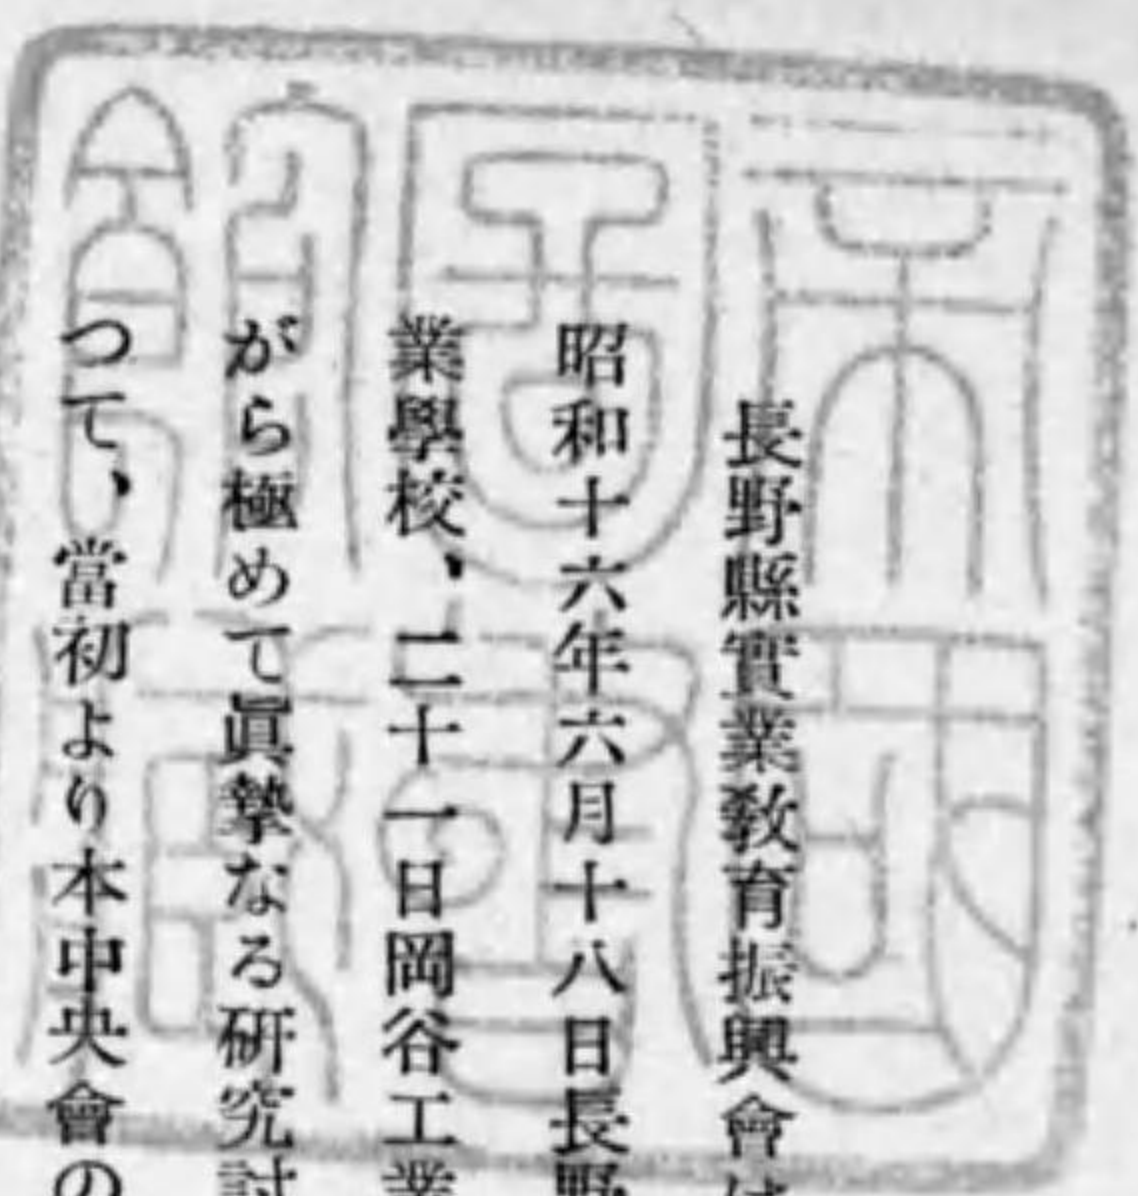 長野縣實業敎育振興會は
昭和十六年六月十八日長野
業學校、二十一日岡谷工業
がら極めて眞摯なる硏究討
つて、當初より本中央會の